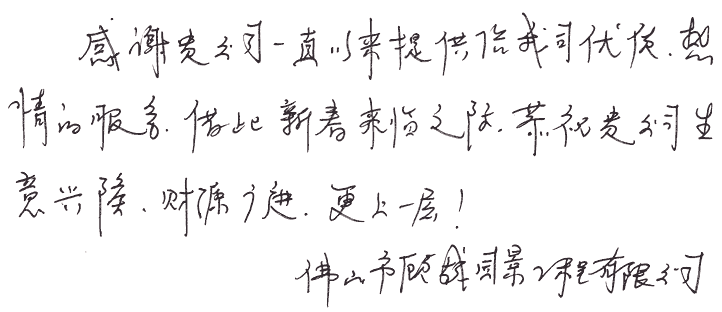 感谢贵公司一直以来提供给我司优质、热
情的服务.借此新春来临之际.恭祝贵公司生
意兴隆、财源广进.更上一层!
佛山市顾雄园景工程有限公司